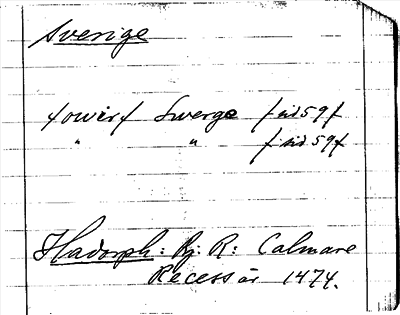 Sverige
/owir/ Swerge /sid 59/
" " /sid 59/
Hadorph: Bj. R: Calmare
Recess år 1474.